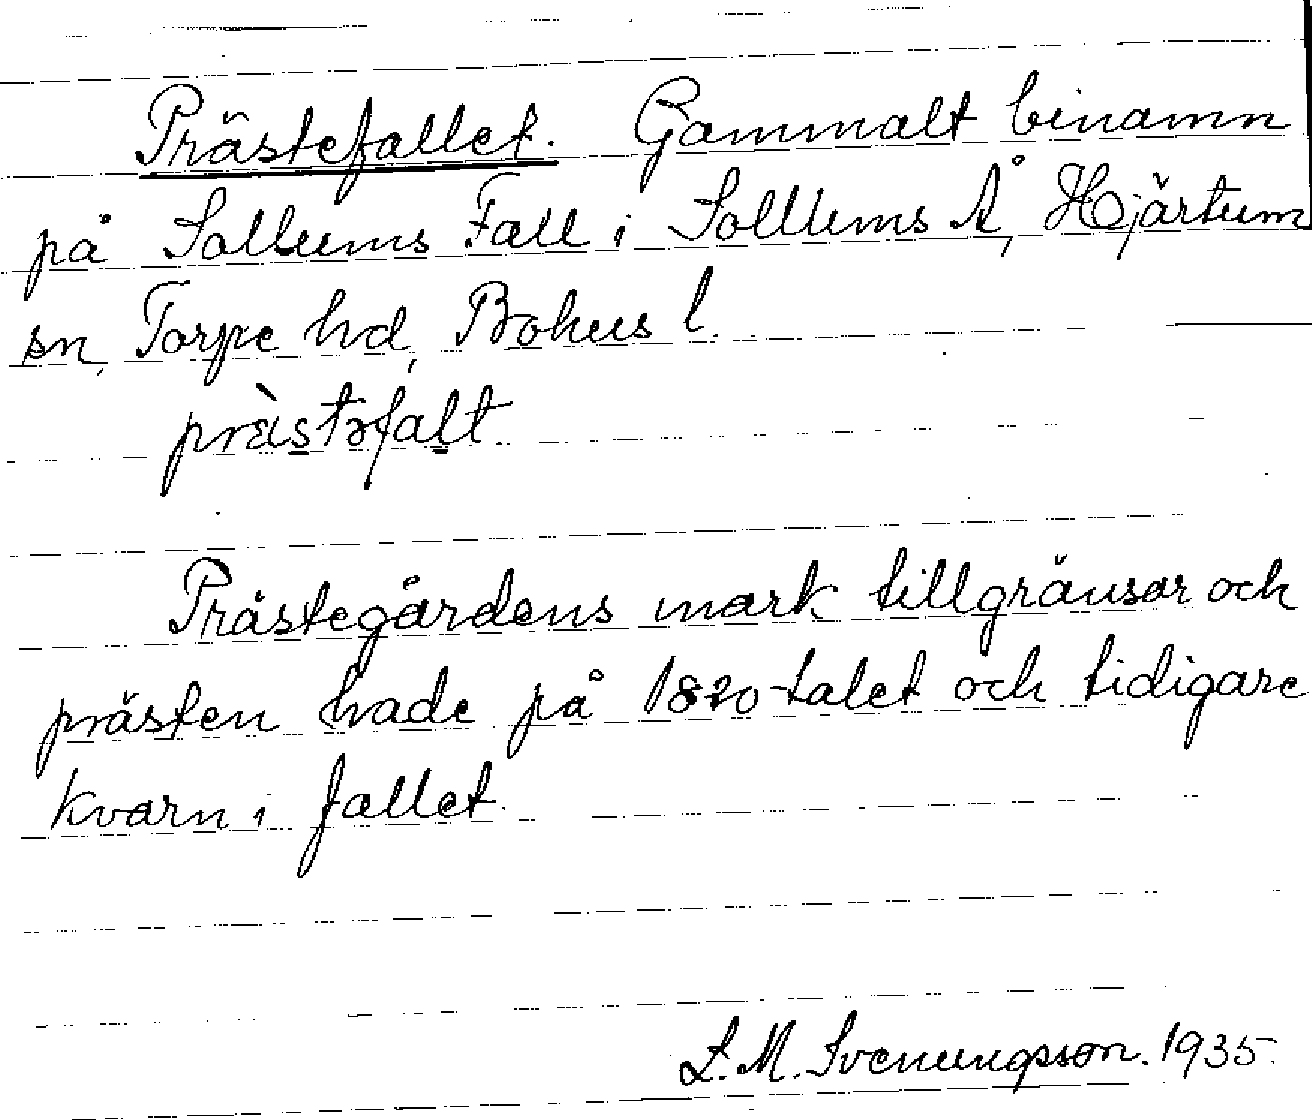 Prästefallet. Gammalt binamn
på Sollums Fall i Sollums Å, Hjärtum
sn, Torpe hd, Bohus l.
prästəfalt
Prästegårdens mark tillgränsar och
prästen hade på 1820-talet och tidigare
kvarn i fallet.
L. M. Svenungsson. 1935.